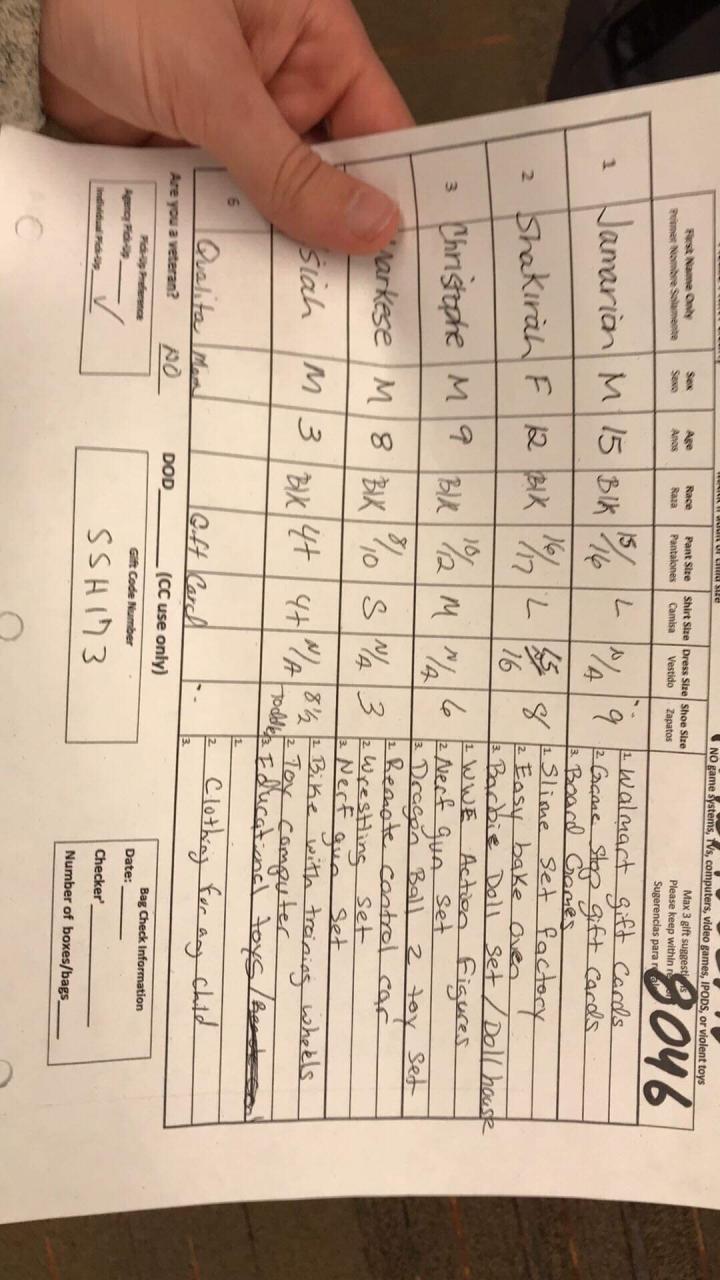 NO game systems, TVs, computers, video games, IPODS, or violent toys
8046
First Name Only Sex Age Race Pant Size Shirt Size Dress Size Shoe Size Max 3 gift suggestions
Primer Nombre Solamente Sexo Anos Raza Pantalones Camisa Vestido Zapatos Please keep within
Sugerencias para
1 Jamarion M 15 Blk 15/16 L N/A 9
1. Walmart gift Cards
2. Game Stop gift cards
3. Board Games
2 Shakirah F 12 Blk 16/17 L 16 8
1. Slime Set factory
2. Easy bake Oven
3. Barbie Doll Set / Doll house
3 Christophe M 9 Blk 10/12 M N/A 6
1. WWE Action Figures
2. Nerf gun Set
3. Dragon Ball Z toy set
arkese M 8 Blk 8/10 S N/A 3
1. Remote control car
2. Wrestling Set
3. Nerf gun Set
siah M 3 Blk 4t 4t N/A 8 1/2 Toddler
1. Bike with training wheels
2. Toy computer
3. Educational toys/
6 Qualita Mom Gift Card
1.
2. Clothing for any child
3.
Are you a veteran? NO DOD (CC use only)
Pick-Up Preference
Agency Pick-Up
Individual Pick-Up ✓
Gift Code Number
SSH173
Bag Check Information
Date:
Checker'
Number of boxes/bags